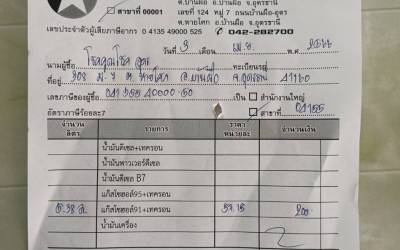 ต.บ้านผือ อ.บ้านผือ จ.อุดรธานี
สาขาที่ 00001 เลขที่ 124 หมู่ 7 ถนนบ้านผือ
ต.หายโศก อ.บ้านผือ จ.อุดรธานี
เลขประจำตัวผู้เสียภาษีอากร 0 4135 49000 525 042-282700
วันที่ 9 เดือน เม.ย. พ.ศ.
นามผู้ซื้อ ทะเบียนรถ
ที่อยู่ 208 ม. 7 ต. หายโศก อ.บ้านผือ จ.อุดรธานี 41160
เลขภาษีของผู้ซื้อ เป็น สำนักงานใหญ่
อัตราภาษีร้อยละ7 สาขาที่
จำนวน ลิตร รายการ ราคา หน่วยละ จำนวนเงิน
น้ำมันดีเซล+เทครอน
น้ำมันพาวเวอร์ดีเซล
น้ำมันดีเซล B7
แก๊สโซฮอล์95+เทครอน
แก๊สโซฮอล์91+เทครอน 37.15 200
น้ำมันเครื่อง